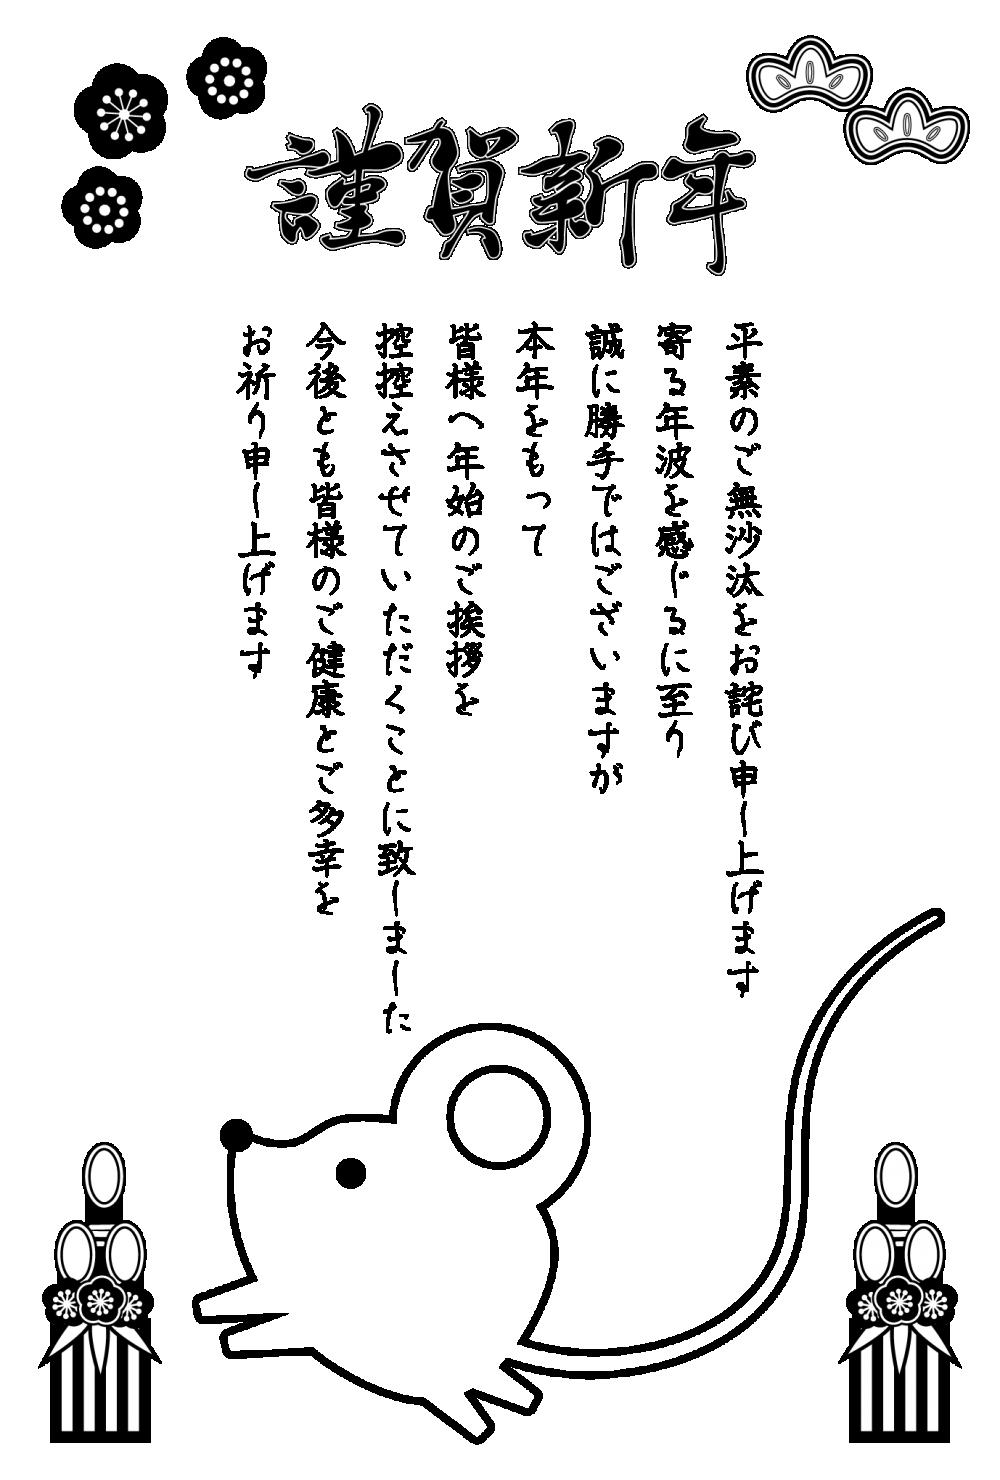 謹賀新年
平素のご無沙汰をお詫び申し上げます
寄る年波を感じるに至り
誠に勝手ではございますが
本年をもって
皆様へ年始のご挨拶を
控控えさせていただくことに致しました
今後とも皆様のご健康とご多幸を
お祈り申し上げます